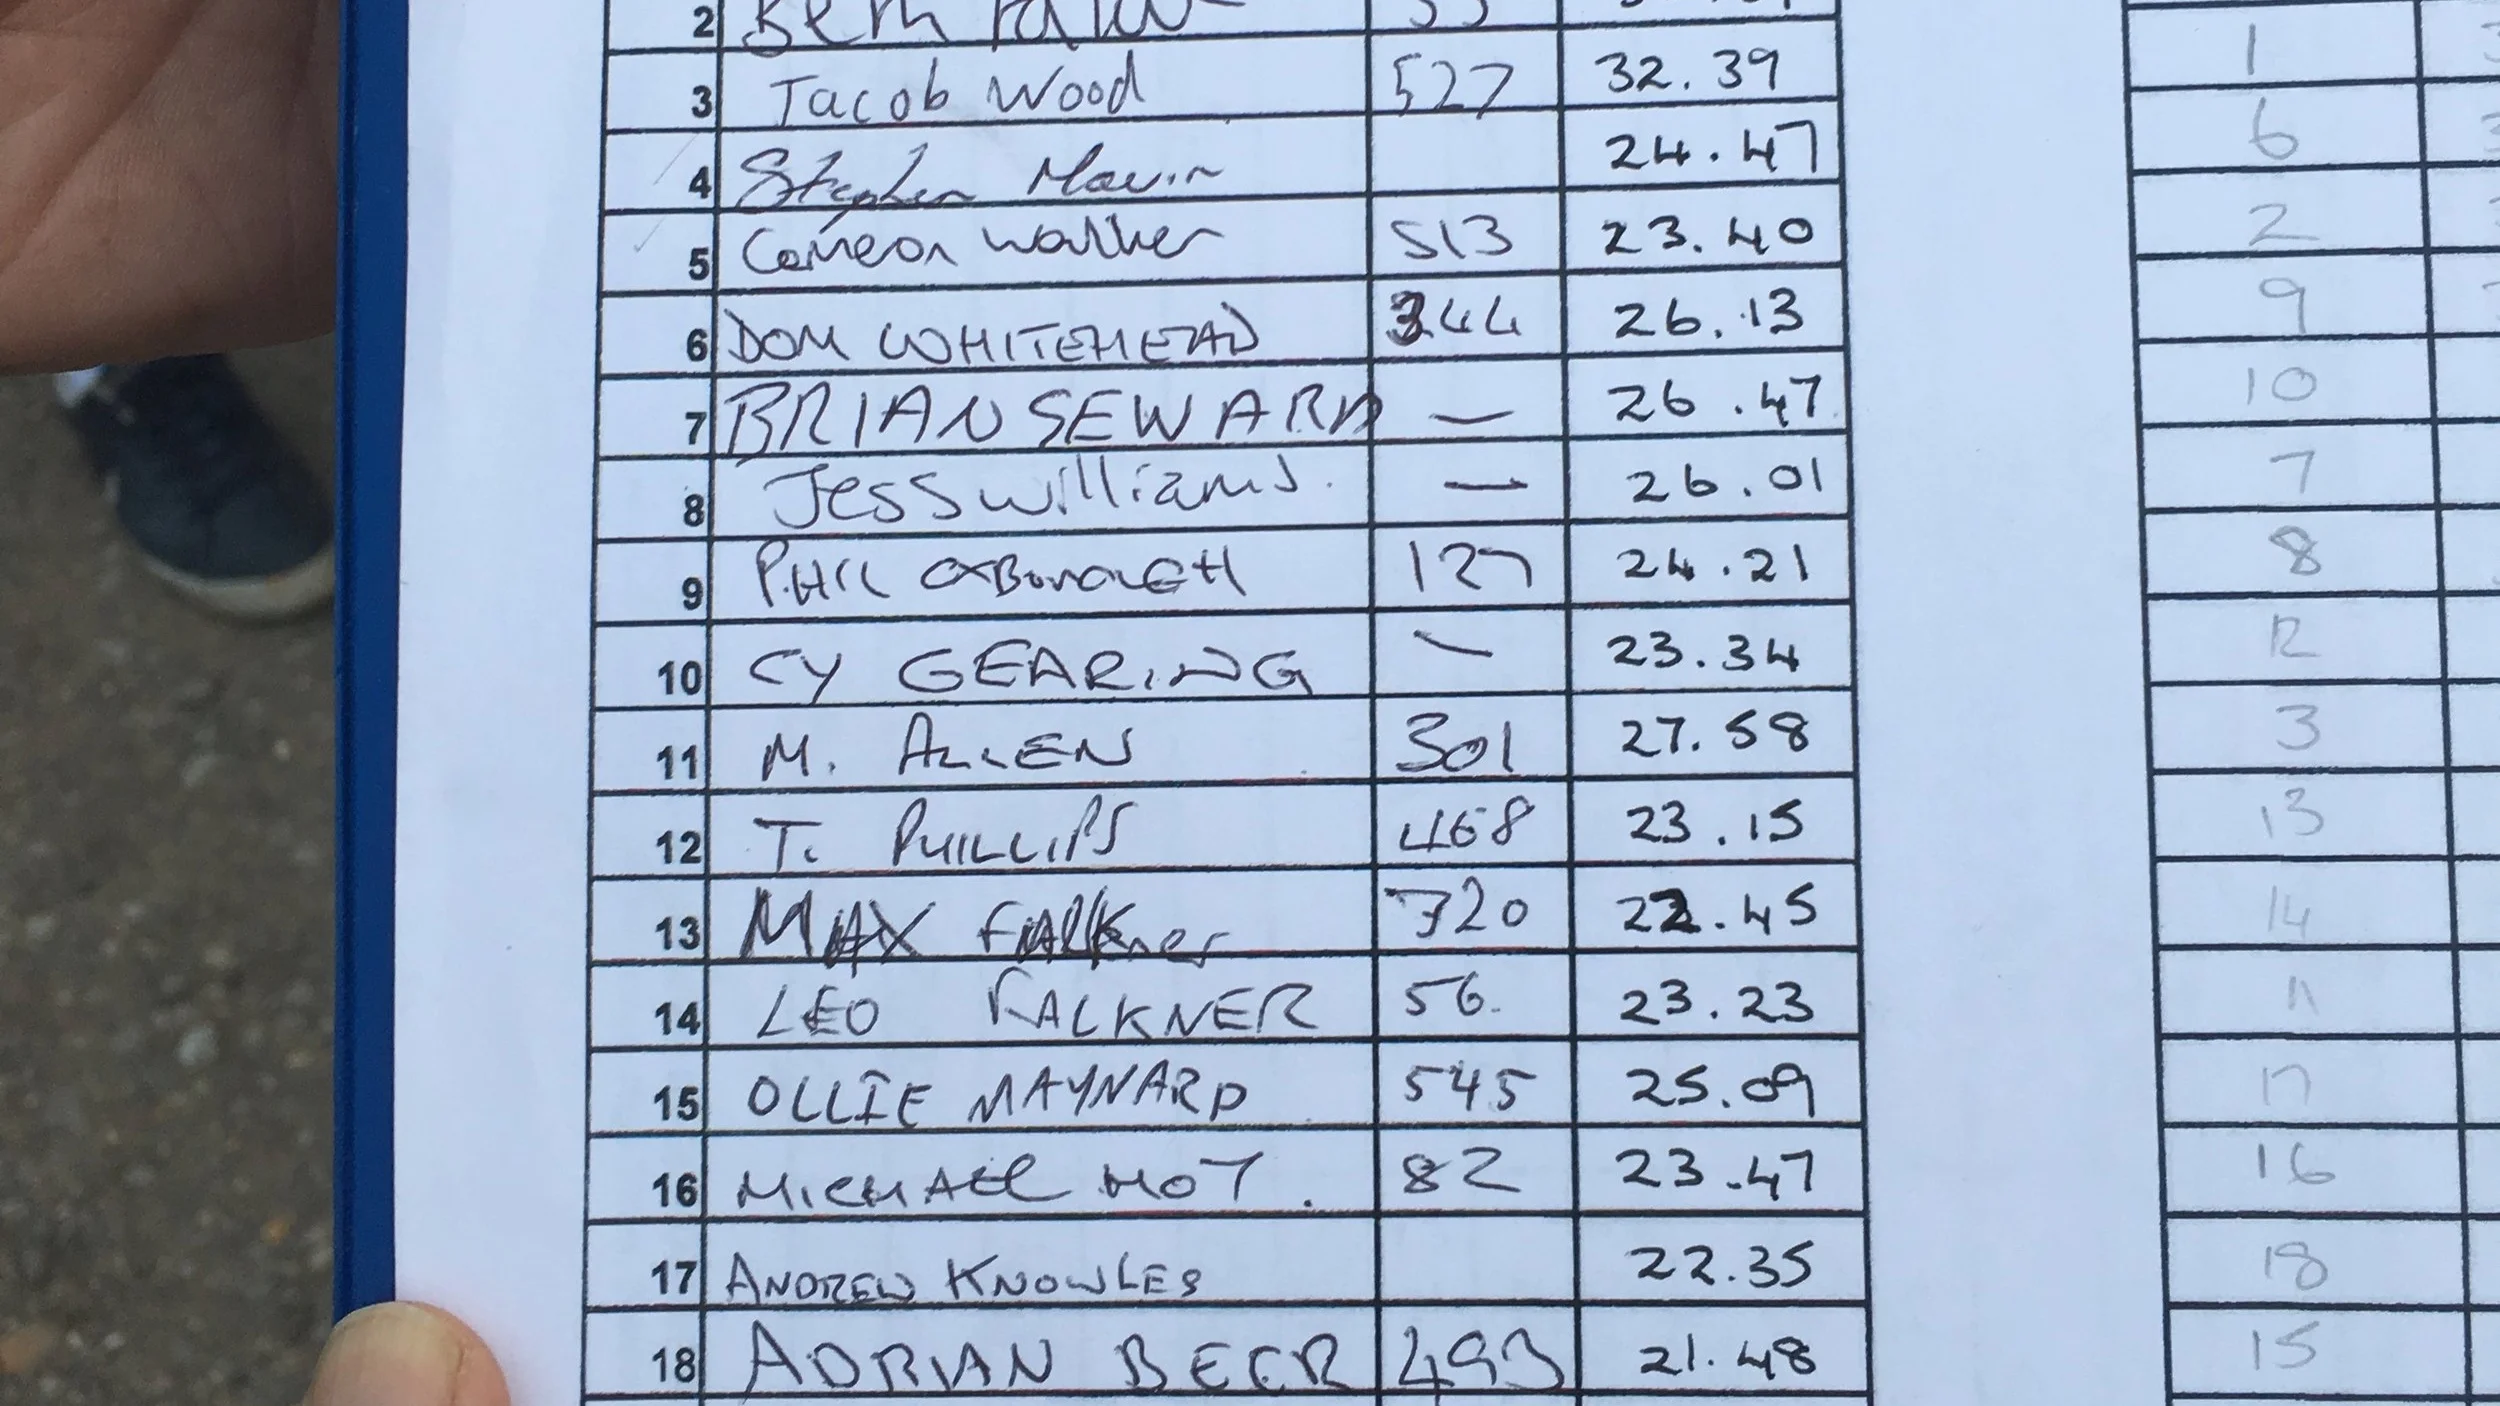 2
3 Jacob Wood 527 32.39
4 Stephen Mavin 24.47
5 Cameron Walker 513 23.40
6 DOM WHITEHEAD 344 26.13
7 BRIAN SEWARD — 26.47
8 Jess Williams. — 26.01
9 PHIL OXBOROUGH 127 24.21
10 CY GEARING — 23.34
11 M. ALLEN 301 27.58
12 T. PHILLIPS 468 23.15
13 MAX FAlKner 720 22.45
14 LEO FALKNER 56. 23.23
15 OLLIE MAYNARD 545 25.09
16 MICHAEL HOY. 82 23.47
17 ANDREW KNOWLES 22.35
18 ADRIAN BEER 493 21.48
1
6
2
9
10
7
8
12
3
13
14
11
17
16
18
15